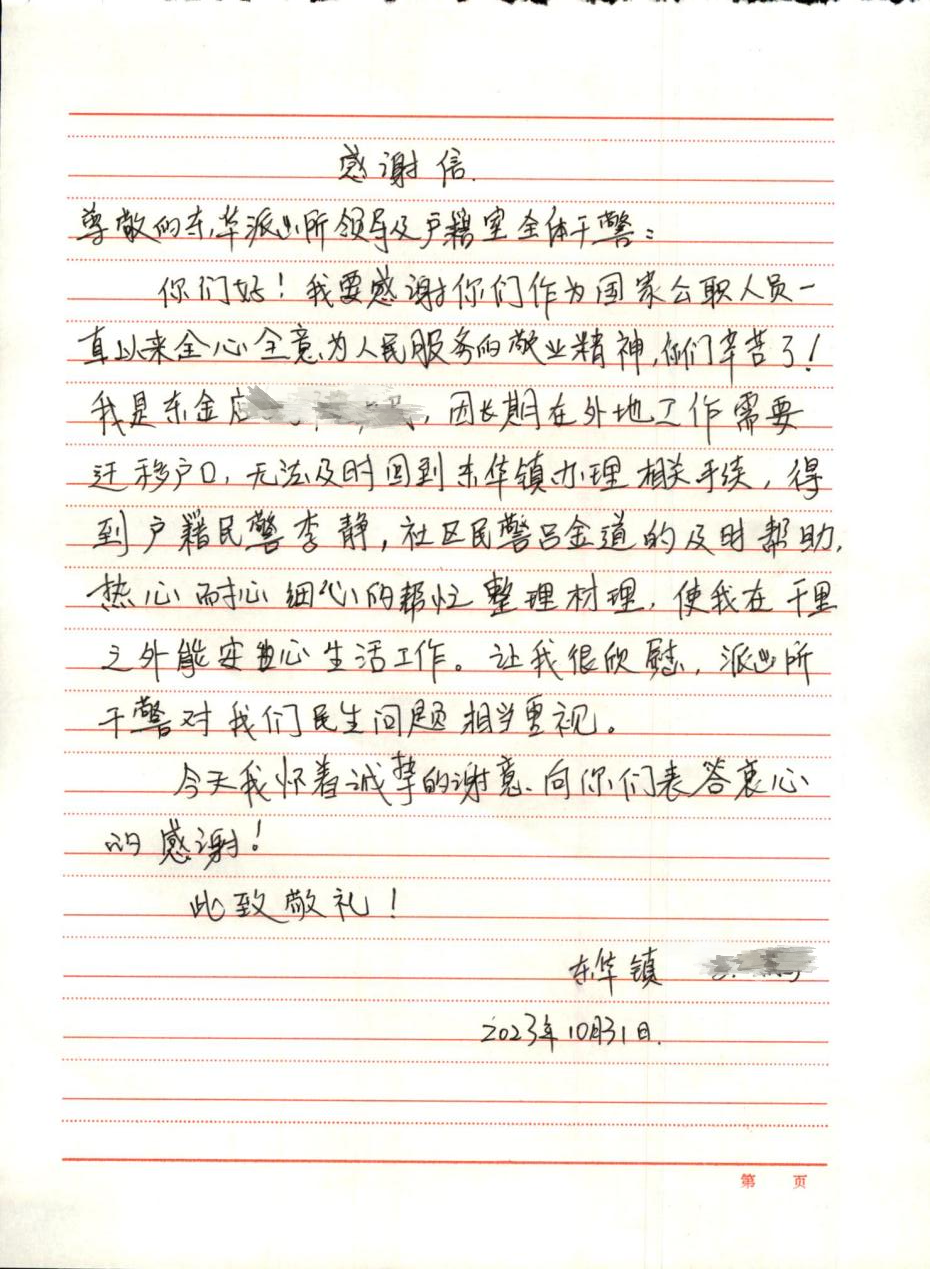 感谢信.
尊敬的东华派出所领导及户籍室全体干警：
你们好！我要感谢你们作为国家公职人员一
直以来全心全意为人民服务的敬业精神,你们辛苦了！
我是东金店，因长期在外地工作需要
迁移户口，无法及时回到东华镇办理相关手续，得
到户籍民警李静，社区民警吕金道的及时帮助，
热心耐心细心的帮忙整理材理，使我在千里
之外能安心生活工作。让我很欣慰，派出所
干警对我们民生问题相当重视。
今天我怀着诚挚的谢意、向你们表答衷心
的感谢！
此致敬礼！
东华镇
2023年10月31日.
第 页